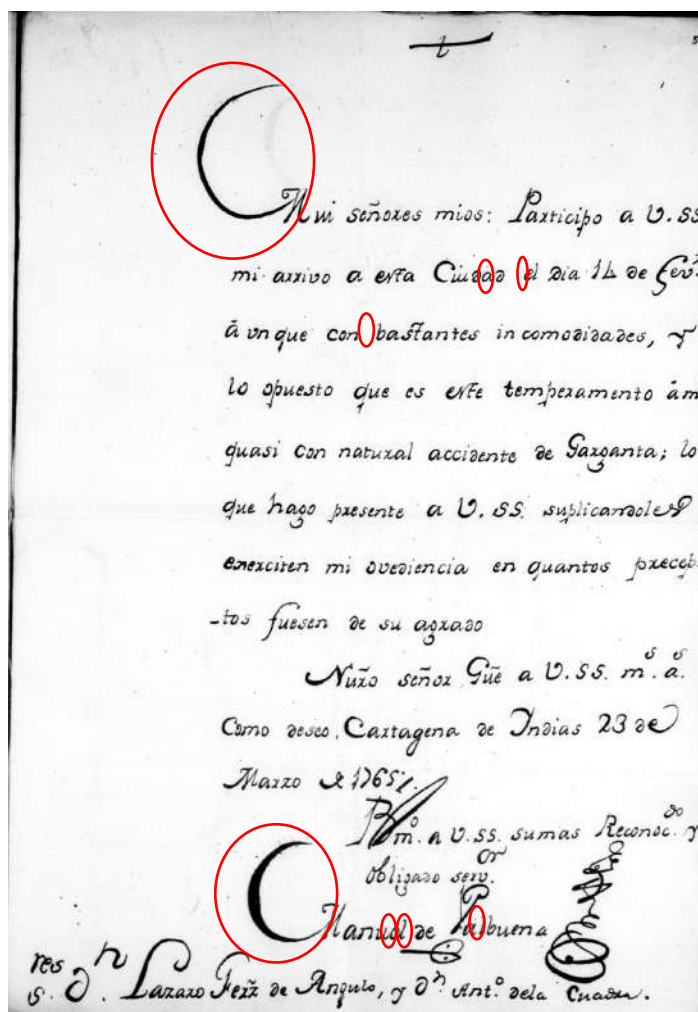 t
Mui señores mios: Participo a V.SS
mi arrivo a esta Ciudad el dia 14 de
áunque con bastantes incomodidades, y
lo opuesto que es este temperamento âm
quasi connatural accidente de Garganta; lo
que hago presente a V.SS. suplicandoles
exerciten mi ovediencia en quantos precep-
-tos fuesen de su agrado
Nuro señor Güe a V.SS. m.s a.s
Como deseo, Cartagena de Indias 23 de
Marzo de 1765
Blm.o a V.SS. su mas Reconoc.do y
obligado serv.or
Manuel de Balbuena
res
s. Dn Lazaro Ferz de Angulo, y Dn Ant.o dela Cuadra.